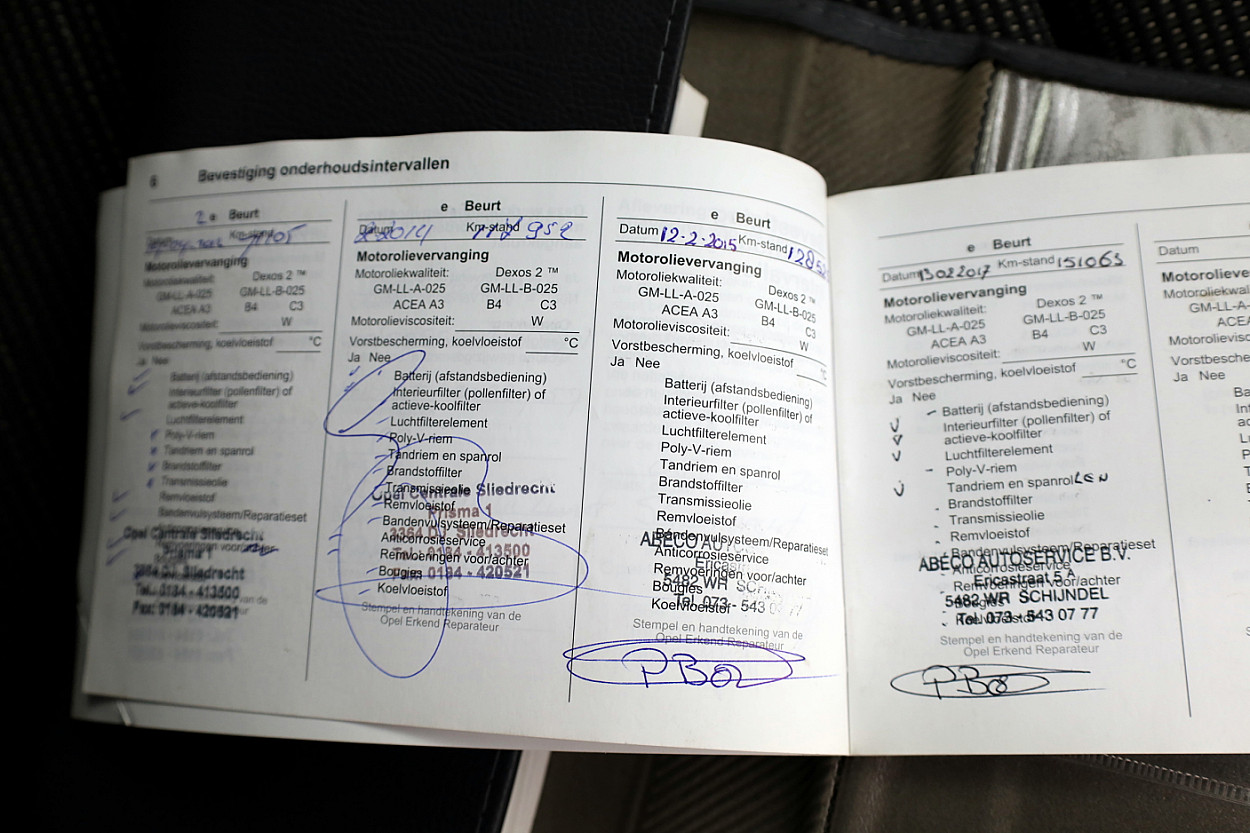 6 Bevestiging onderhoudsintervallen
2 e Beurt
Km-stand
Motorolievervanging
Motoroliekwaliteit: Dexos 2 ™
GM-LL-A-025 GM-LL-B-025
ACEA A3 B4 C3
Motorolieviscositeit: W
Vorstbescherming, koelvloeistof °C
Ja Nee
Batterij (afstandsbediening)
Interieurfilter (pollenfilter) of
actieve-koolfilter
Luchtfilterelement
Poly-V-riem
Tandriem en spanrol
Brandstoffilter
Transmissieolie
Remvloeistof
Bandenvulsysteem/Reparatieset
Opel Centrale Sliedrecht
Prisma 1
3364 DJ Sliedrecht
Tel.: 0184 - 413500
Fax: 0184 - 420521
e Beurt
Datum 2014 Km-stand 952
Motorolievervanging
Motoroliekwaliteit: Dexos 2 ™
GM-LL-A-025 GM-LL-B-025
ACEA A3 B4 C3
Motorolieviscositeit: W
Vorstbescherming, koelvloeistof °C
Ja Nee
Batterij (afstandsbediening)
Interieurfilter (pollenfilter) of
actieve-koolfilter
Luchtfilterelement
Poly-V-riem
Tandriem en spanrol
Brandstoffilter
Transmissieolie
Remvloeistof
Bandenvulsysteem/Reparatieset
Anticorrosieservice
Remvoeringen voor/achter
Bougies
Koelvloeistof
Opel Centrale Sliedrecht
Prisma 1
3364 DJ Sliedrecht
0184 - 413500
0184 - 420521
Stempel en handtekening van de
Opel Erkend Reparateur
e Beurt
Datum 12-2-2015 Km-stand
Motorolievervanging
Motoroliekwaliteit: Dexos 2 ™
GM-LL-A-025 GM-LL-B-025
ACEA A3 B4 C3
Motorolieviscositeit: W
Vorstbescherming, koelvloeistof °C
Ja Nee
Batterij (afstandsbediening)
Interieurfilter (pollenfilter) of
actieve-koolfilter
Luchtfilterelement
Poly-V-riem
Tandriem en spanrol
Brandstoffilter
Transmissieolie
Remvloeistof
Bandenvulsysteem/Reparatieset
Anticorrosieservice
Remvoeringen voor/achter
Bougies
Koelvloeistof
ABECO
5482 WR
Tel. 073 - 543
Stempel en handtekening van de
Opel Erkend Reparateur
e Beurt
Datum 13 02 2017 Km-stand 151063
Motorolievervanging
Motoroliekwaliteit: Dexos 2 ™
GM-LL-A-025 GM-LL-B-025
ACEA A3 B4 C3
Motorolieviscositeit: W
Vorstbescherming, koelvloeistof °C
Ja Nee
Batterij (afstandsbediening)
Interieurfilter (pollenfilter) of
actieve-koolfilter
Luchtfilterelement
Poly-V-riem
Tandriem en spanrol
Brandstoffilter
Transmissieolie
Remvloeistof
Bandenvulsysteem/Reparatieset
Anticorrosieservice
Remvoeringen voor/achter
Bougies
Koelvloeistof
ABECO AUTOSERVICE B.V.
Ericastraat 5 A
5482 WR SCHIJNDEL
Tel. 073 - 543 07 77
Stempel en handtekening van de
Opel Erkend Reparateur
Datum
Ja Nee